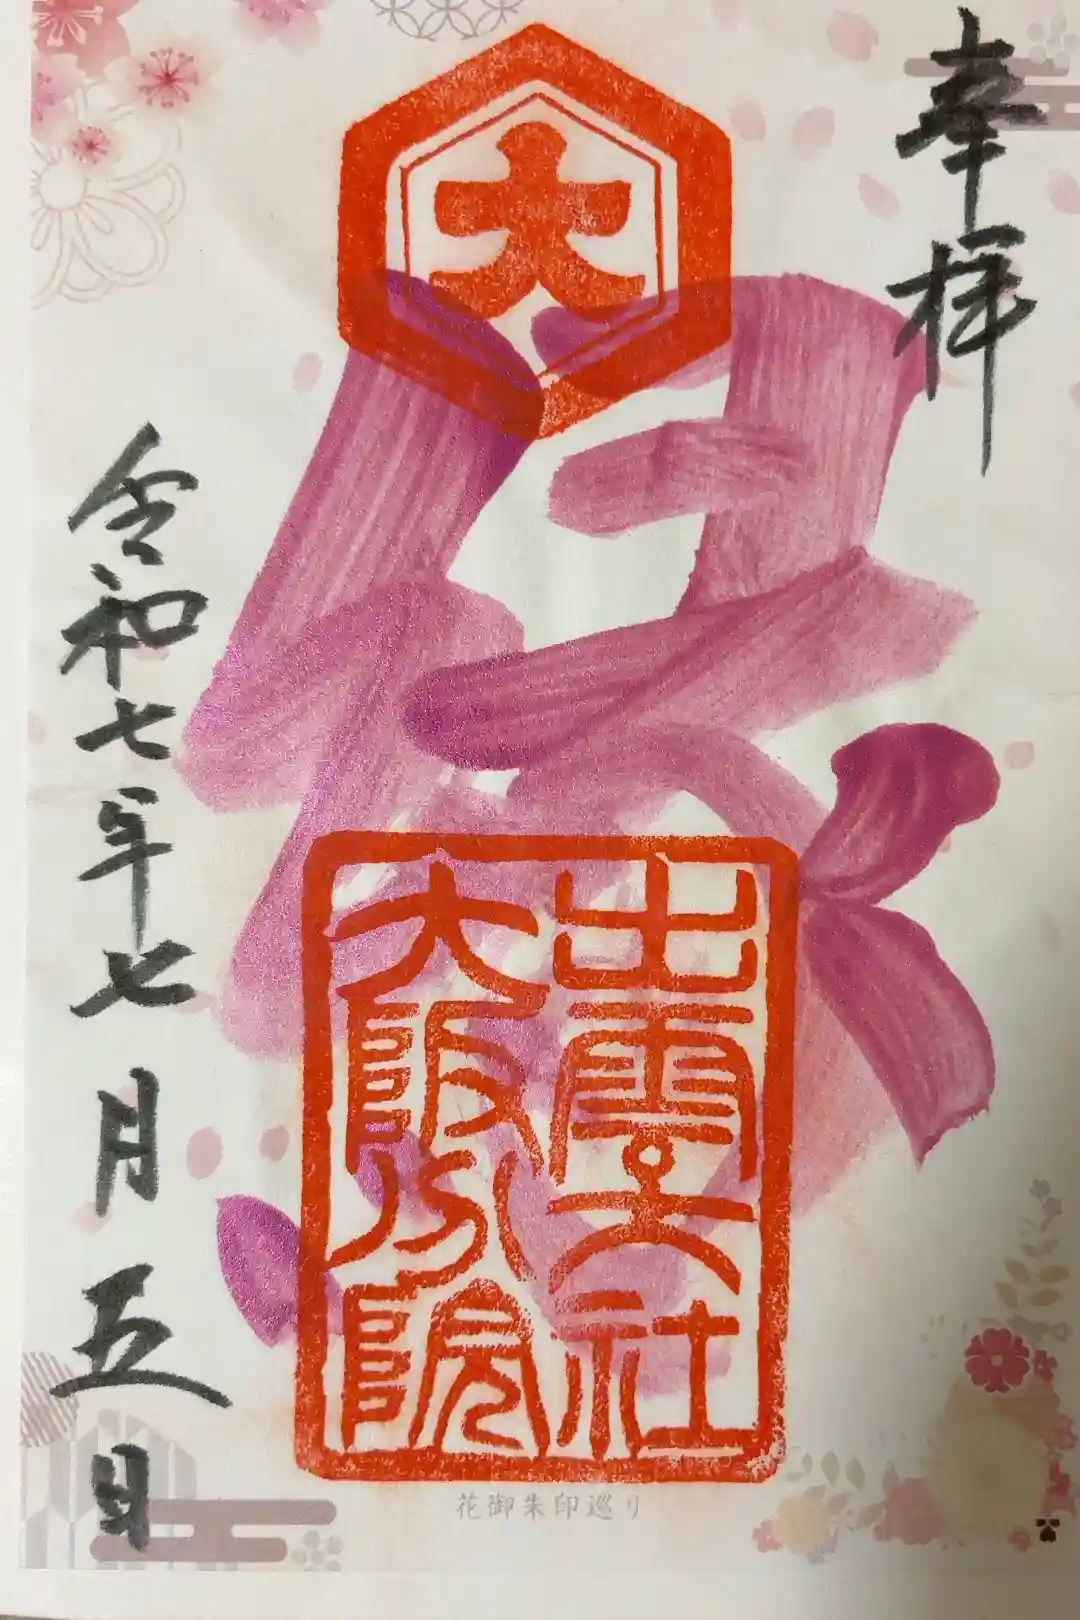 奉拝
大
縁
出雲大社
大阪分院
花御朱印巡り
令和七年七月五日